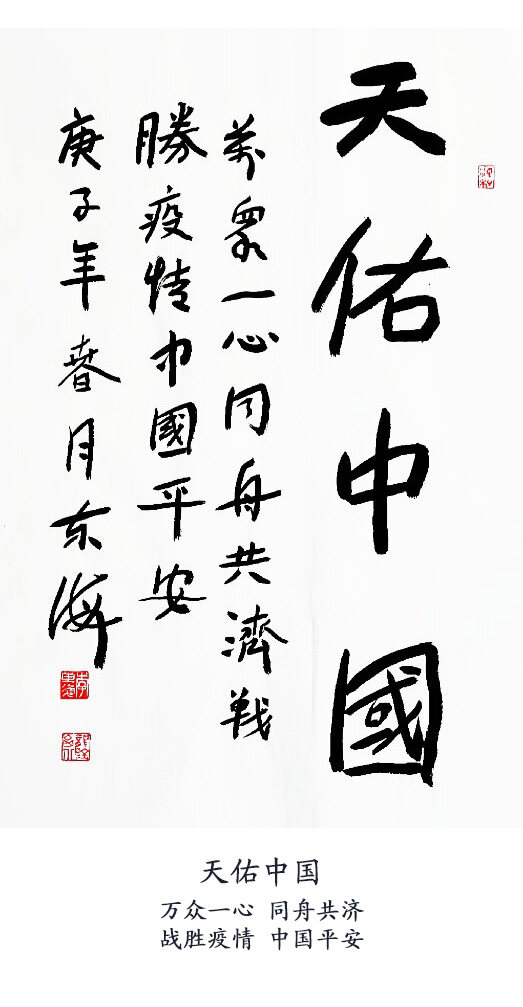 天佑中國
萬眾一心同舟共濟戰
勝疫情中國平安
庚子年春月东海
天佑中国
万众一心 同舟共济
战胜疫情 中国平安